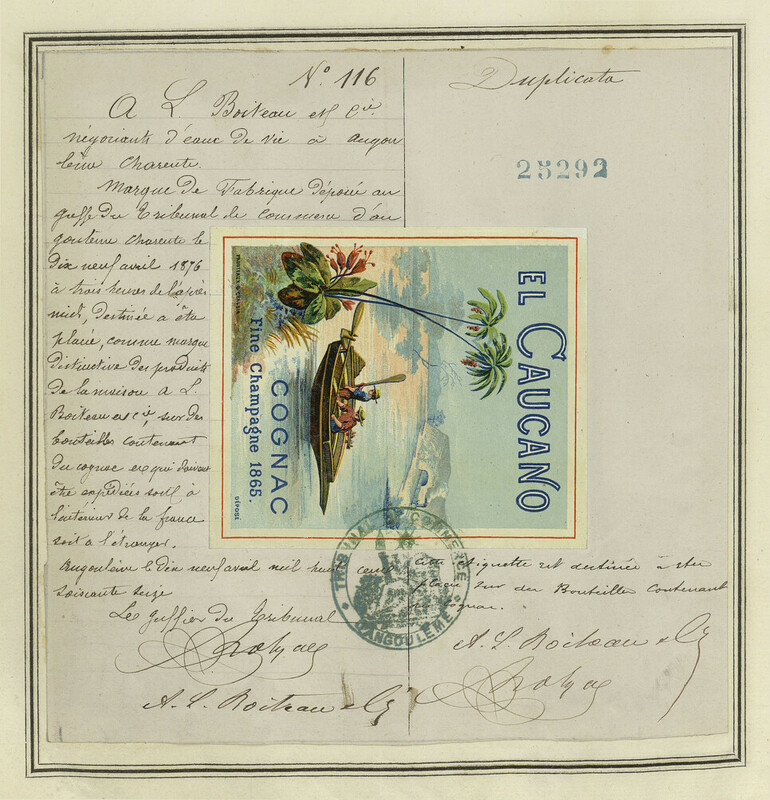 N° 116
A L Boiteau et Cie
négociants d'eaux de vie à Angou
lême Charente.
Marque de Fabrique déposée au
greffe du Tribunal de Commerce d'an
goulême Charente le
dix neuf avril 1876
à trois heures de l'après
midi, destinée à être
placée, comme marque
distinctive des produits
de la maison A L.
Boiteau et Cie, sur des
bouteilles contenant
du cognac et qui doivent
être expédiées soit à
l'intérieur de la france
soit à l'étranger.
Angoulême le dix neuf avril mil huit cent
soixante seize
Le greffier du Tribunal
A. L. Boiteau & Cie
Duplicata
25292
EL CAUCANO
COGNAC
Fine Champagne 1865.
DÉPOSÉ
TRIBUNAL DE COMMERCE
D'ANGOULEME
étiquette est destinée à être
placée sur des Bouteilles contenant
du cognac.
A. L. Boiteau & Cie